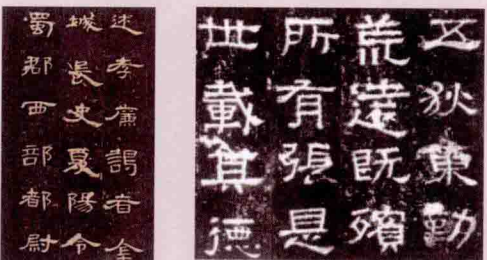 述孝廉謁者金
城長史夏陽令
蜀郡西部都尉
五狄東勤
荒遠既殯
所有張是
世載其德